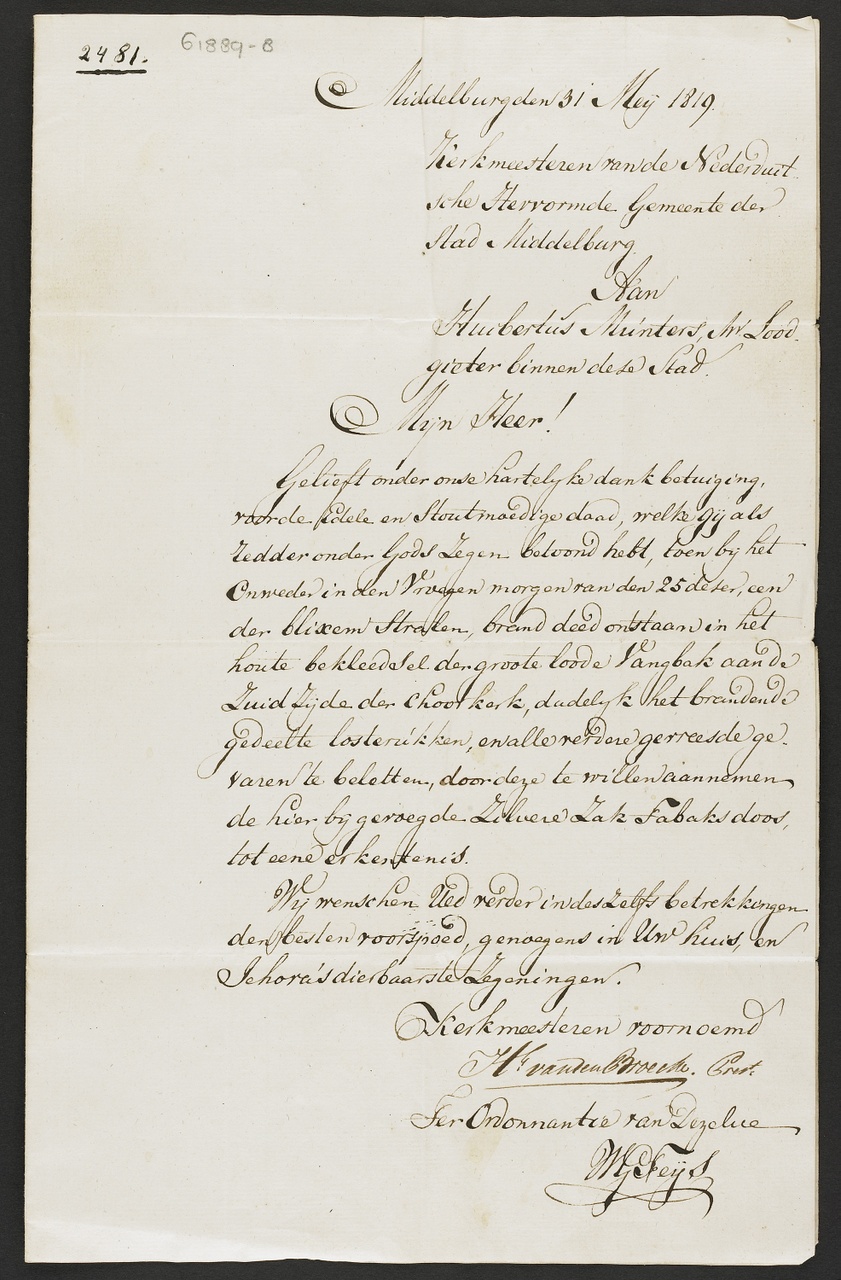 2481.
61889-8
Middelburg den 31 Meij 1819.
Kerkmeesteren van de Nederduit
sche Hervormde Gemeente der
stad Middelburg.
Aan
Huibertus Munters, Mr Lood
gieter binnen dese Stad.
Mijn Heer!
Gelieft onder onse hartelyke dank betuiging,
voor de Edele en Stoutmoedige daad, welke gij als
redder onder Gods Zegen betoond hebt, toen bij het
Onweder in den Vroegen morgen van den 25 deser, een
der blixem Stralen, brand deed ontstaan in het
houte bekleedsel der groote loode Vangbak aan de
Zuid Zijde der Choor kerk, dadelyk het brandende
gedeelte losterukken, en alle verdere gevreesde ge-
varen te beletten, door deze te willen aannemen
de hier bij gevoegde Zilvere Zak Tabaks doos,
tot eene erkentenis.
Wij wenschen Ued verder in deszelfs betrekkingen
den besten voorspoed, genoegens in Uw huis, en
Jehova's dierbaarste Zegeningen.
Kerkmeesteren voornoemd
Hk van den Broecke. Prest
Ter Ordonnantie van Dezelve